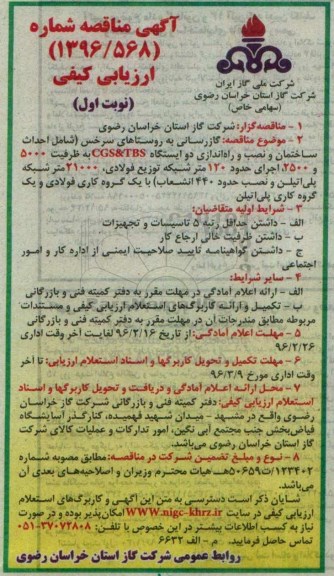 آگهی مناقصه شماره
(۱۳۹۶/۵۶۸)
ارزیابی کیفی
(نوبت اول)
شرکت ملی گاز ایران
شرکت گاز استان خراسان رضوی
(سهامی خاص)
۱ - مناقصه‌گزار: شرکت گاز استان خراسان رضوی
۲ - موضوع مناقصه: گازرسانی به روستاهای سرخس (شامل احداث
ساختمان و نصب و راه‌اندازی دو ایستگاه CGS&TBS به ظرفیت ۵۰۰۰
و ۲۵۰۰، اجرای حدود ۱۲۰ متر شبکه توزیع فولادی، ۲۱۰۰۰ متر شبکه
پلی‌اتیلن و نصب حدود ۴۴۰ انشعاب) با یک گروه کاری فولادی و یک
گروه کاری پلی‌اتیلن
۳ - شرایط اولیه متقاضیان:
الف - داشتن حداقل رتبه ۵ تاسیسات و تجهیزات
ب - داشتن ظرفیت خالی ارجاع کار
ج - داشتن گواهینامه تایید صلاحیت ایمنی از اداره کار و امور
اجتماعی
۴ - سایر شرایط:
الف - ارائه اعلام آمادگی در مهلت مقرر به دفتر کمیته فنی و بازرگانی
ب - تکمیل و ارائه کاربرگ‌های استعلام ارزیابی کیفی و مستندات
مربوطه مطابق مندرجات آن در مهلت مقرر به دفتر کمیته فنی و بازرگانی
۵ - مهلت اعلام آمادگی: از تاریخ ۹۶/۲/۱۶ لغایت آخر وقت اداری
۹۶/۲/۲۶
۶ - مهلت تکمیل و تحویل کاربرگها و اسناد استعلام ارزیابی: تا آخر
وقت اداری مورخ ۹۶/۳/۹
۷ - محل ارائه اعلام آمادگی و دریافت و تحویل کاربرگها و اسناد
استعلام ارزیابی کیفی: دفتر کمیته فنی و بازرگانی شرکت گاز خراسان
رضوی واقع در مشهد - میدان شهید فهمیده، کنارگذر آسایشگاه
فیاض‌بخش جنب مجتمع آبی نگین، امور تدارکات و عملیات کالای شرکت
گاز استان خراسان رضوی می‌باشد.
۸ - نوع و مبلغ تضمین شرکت در مناقصه: مطابق مصوبه شماره
۱۲۳۴۰۲/ت۵۰۶۵۹هـ هیات محترم وزیران و اصلاحیه‌های بعدی آن
می‌باشد.
شایان ذکر است دسترسی به متن این آگهی و کاربرگ‌های استعلام
ارزیابی کیفی در سایت WWW.nigc-khrz.ir امکان‌پذیر بوده و در صورت
نیاز به کسب اطلاعات بیشتر در این خصوص با تلفن: ۳۷۰۷۲۸۰۸-۰۵۱
تماس حاصل فرمایید. م - الف ۶۶۳۲
روابط عمومی شرکت گاز استان خراسان رضوی